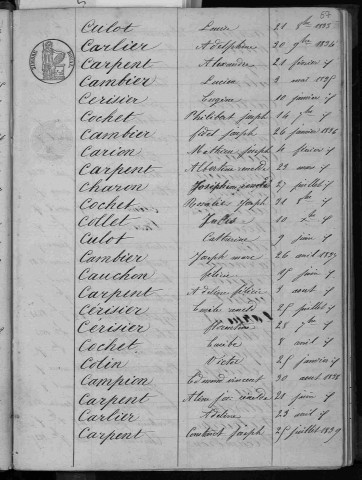 57
Culot Louise 21 8bre 1835
Carlier Adolphine 30 9bre 1834
Carpent Alexandre 21 février id
Cambier Lucien 3 mai 1835
Cerisier Eugène 10 janvier id
Cochet Philibert Joseph 14 7bre id
Cambier fidel Joseph 26 janvier 1836
Carion Mathieu Joseph 4 février id
Carpent Albertine 23 mai id
Charon Joséphine 27 juillet id
Cochet Rosalie Joseph 31 8bre id
Collet Jules 10 Xbre id
Culot Catherine 9 juin id
Cambier Joseph marc 26 avril 1837
Cauchon félicie 25 juin id
Carpent Adeline félicie 8 aout id
Cérisier Emile 25 juillet id
Cérisier florentine 28 7bre
Cochet Emile 8 mai id
Colin Victor 25 janvier id
Campion Edmond vincent 30 aout 1838
Carpent 21 juin id
Carlier Adeline 23 avril id
Carpent Constant Joseph 25 juillet 1839